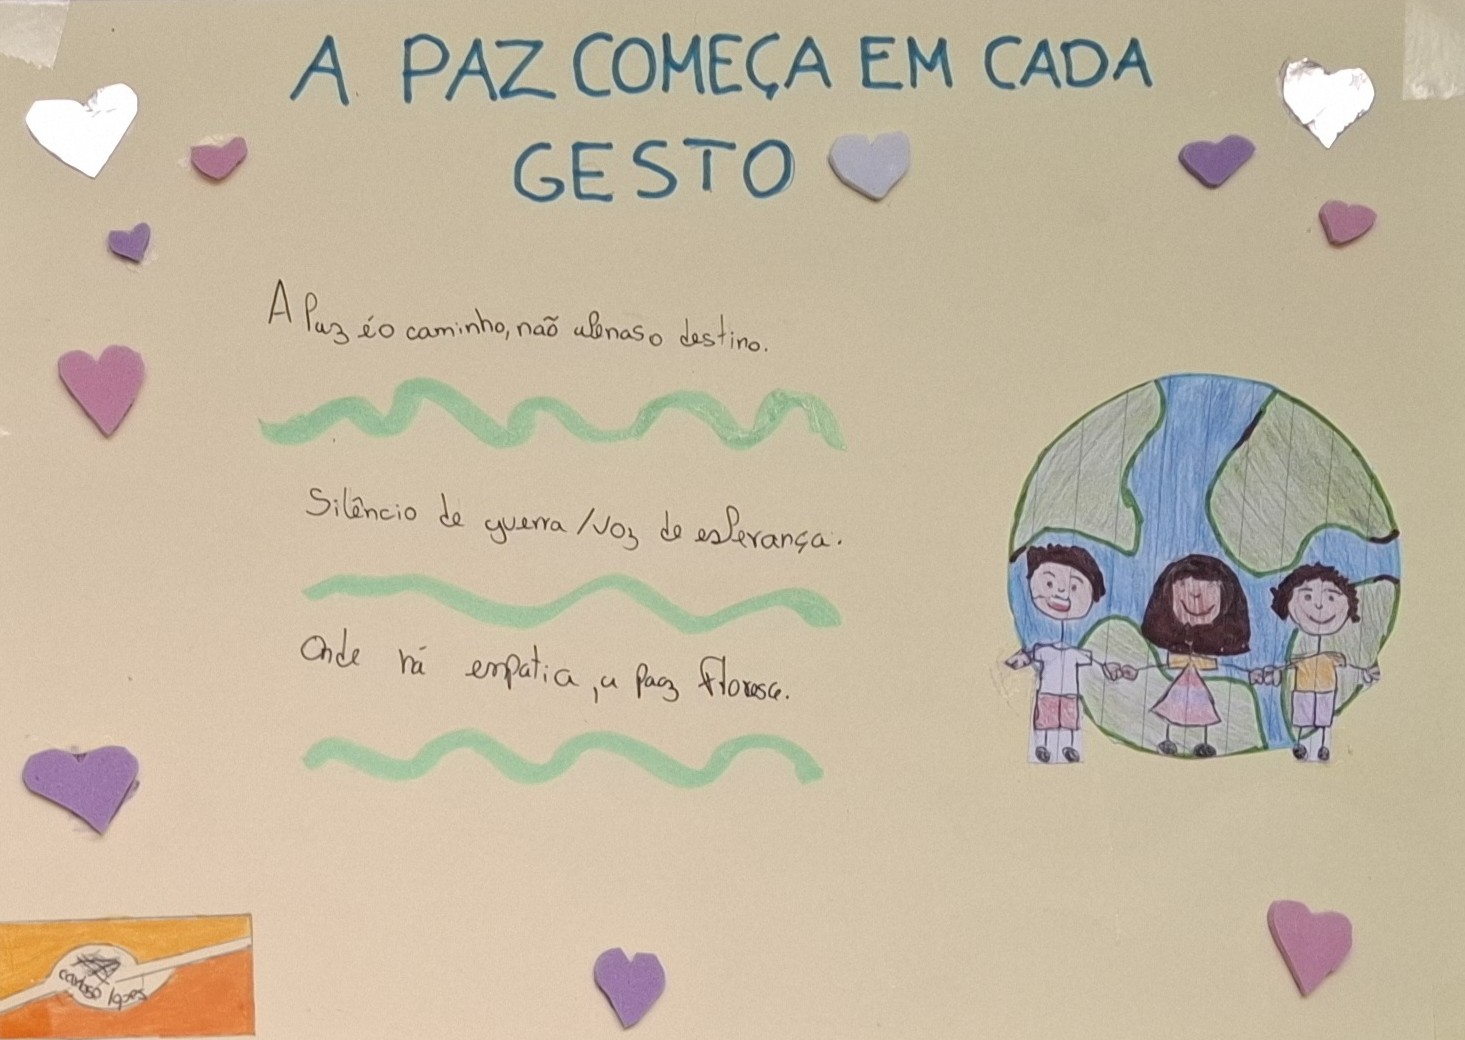 A PAZ COMEÇA EM CADA
GESTO
A Paz é o caminho, não apenas o destino.
Silêncio de guerra / Voz de esperança.
Onde há empatia, a Paz floresce.
cardoso lopes